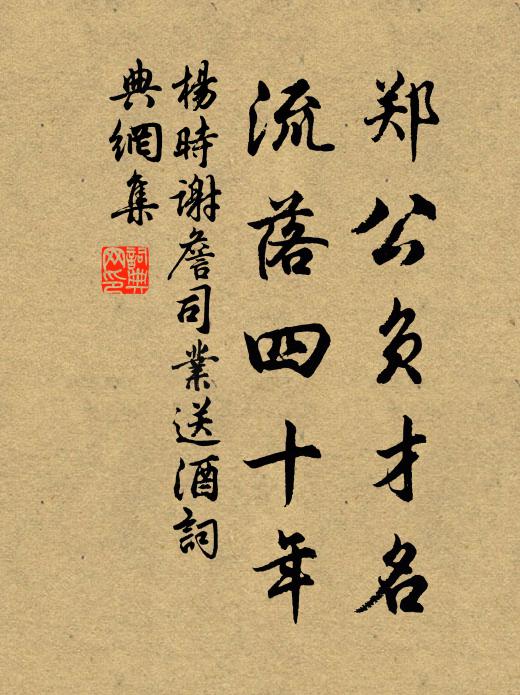 郑公负才名
流落四十年
楊時謝詹司業送酒詞
典網集
詞典
网印